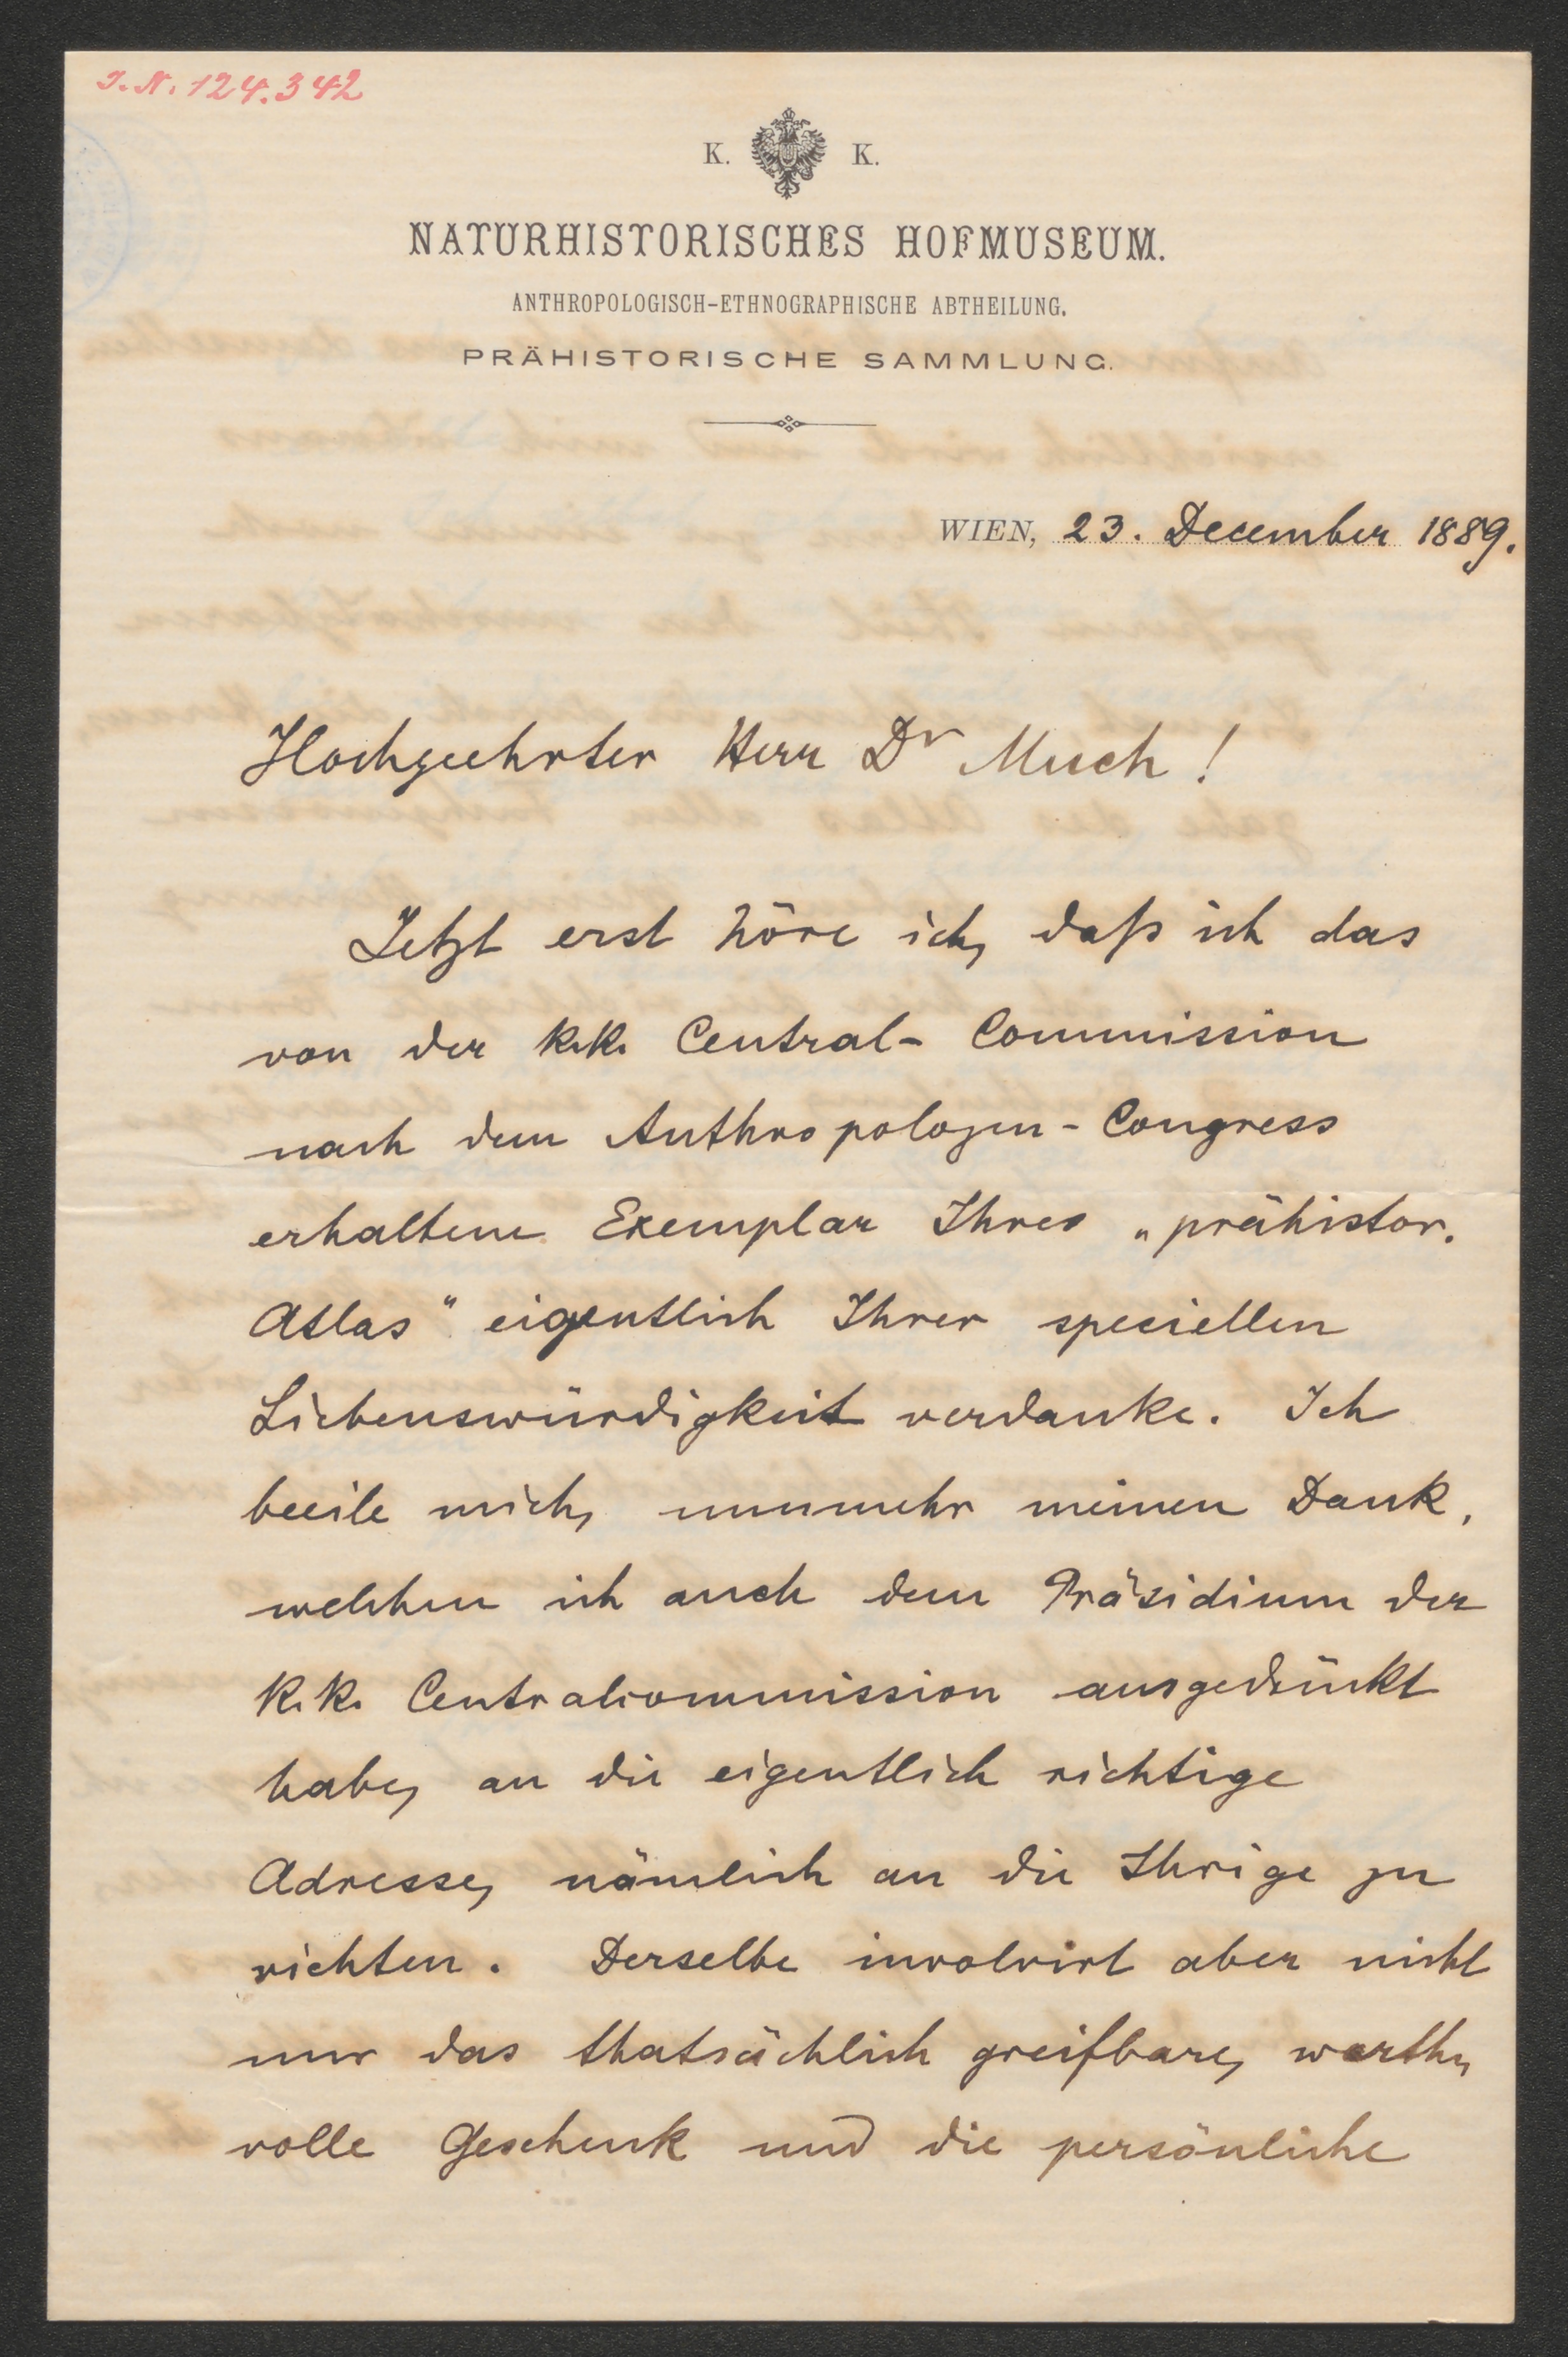 I. N. 124.342
K. K.
NATURHISTORISCHES HOFMUSEUM.
ANTHROPOLOGISCH-ETHNOGRAPHISCHE ABTHEILUNG.
PRÄHISTORISCHE SAMMLUNG.
WIEN, 23. December 1889.
Hochgeehrter Herr Dr Much!
Jetzt erst höre ich, daß ich das
von der k. k. Central-Commission
nach dem Anthropologen-Congress
erhaltene Exemplar Ihres „prähistor.
Atlas" eigentlich Ihrer speciellen
Liebenswürdigkeit verdanke. Ich
beeile mich, nunmehr meinen Dank,
welchen ich auch dem Präsidium der
k. k. Centralcommission ausgedrückt
habe, an die eigentlich richtige
Adresse, nämlich an die Ihrige zu
richten. Derselbe involvirt aber nicht
nur das thatsächlich greifbare, werth-
volle Geschenk und die persönliche